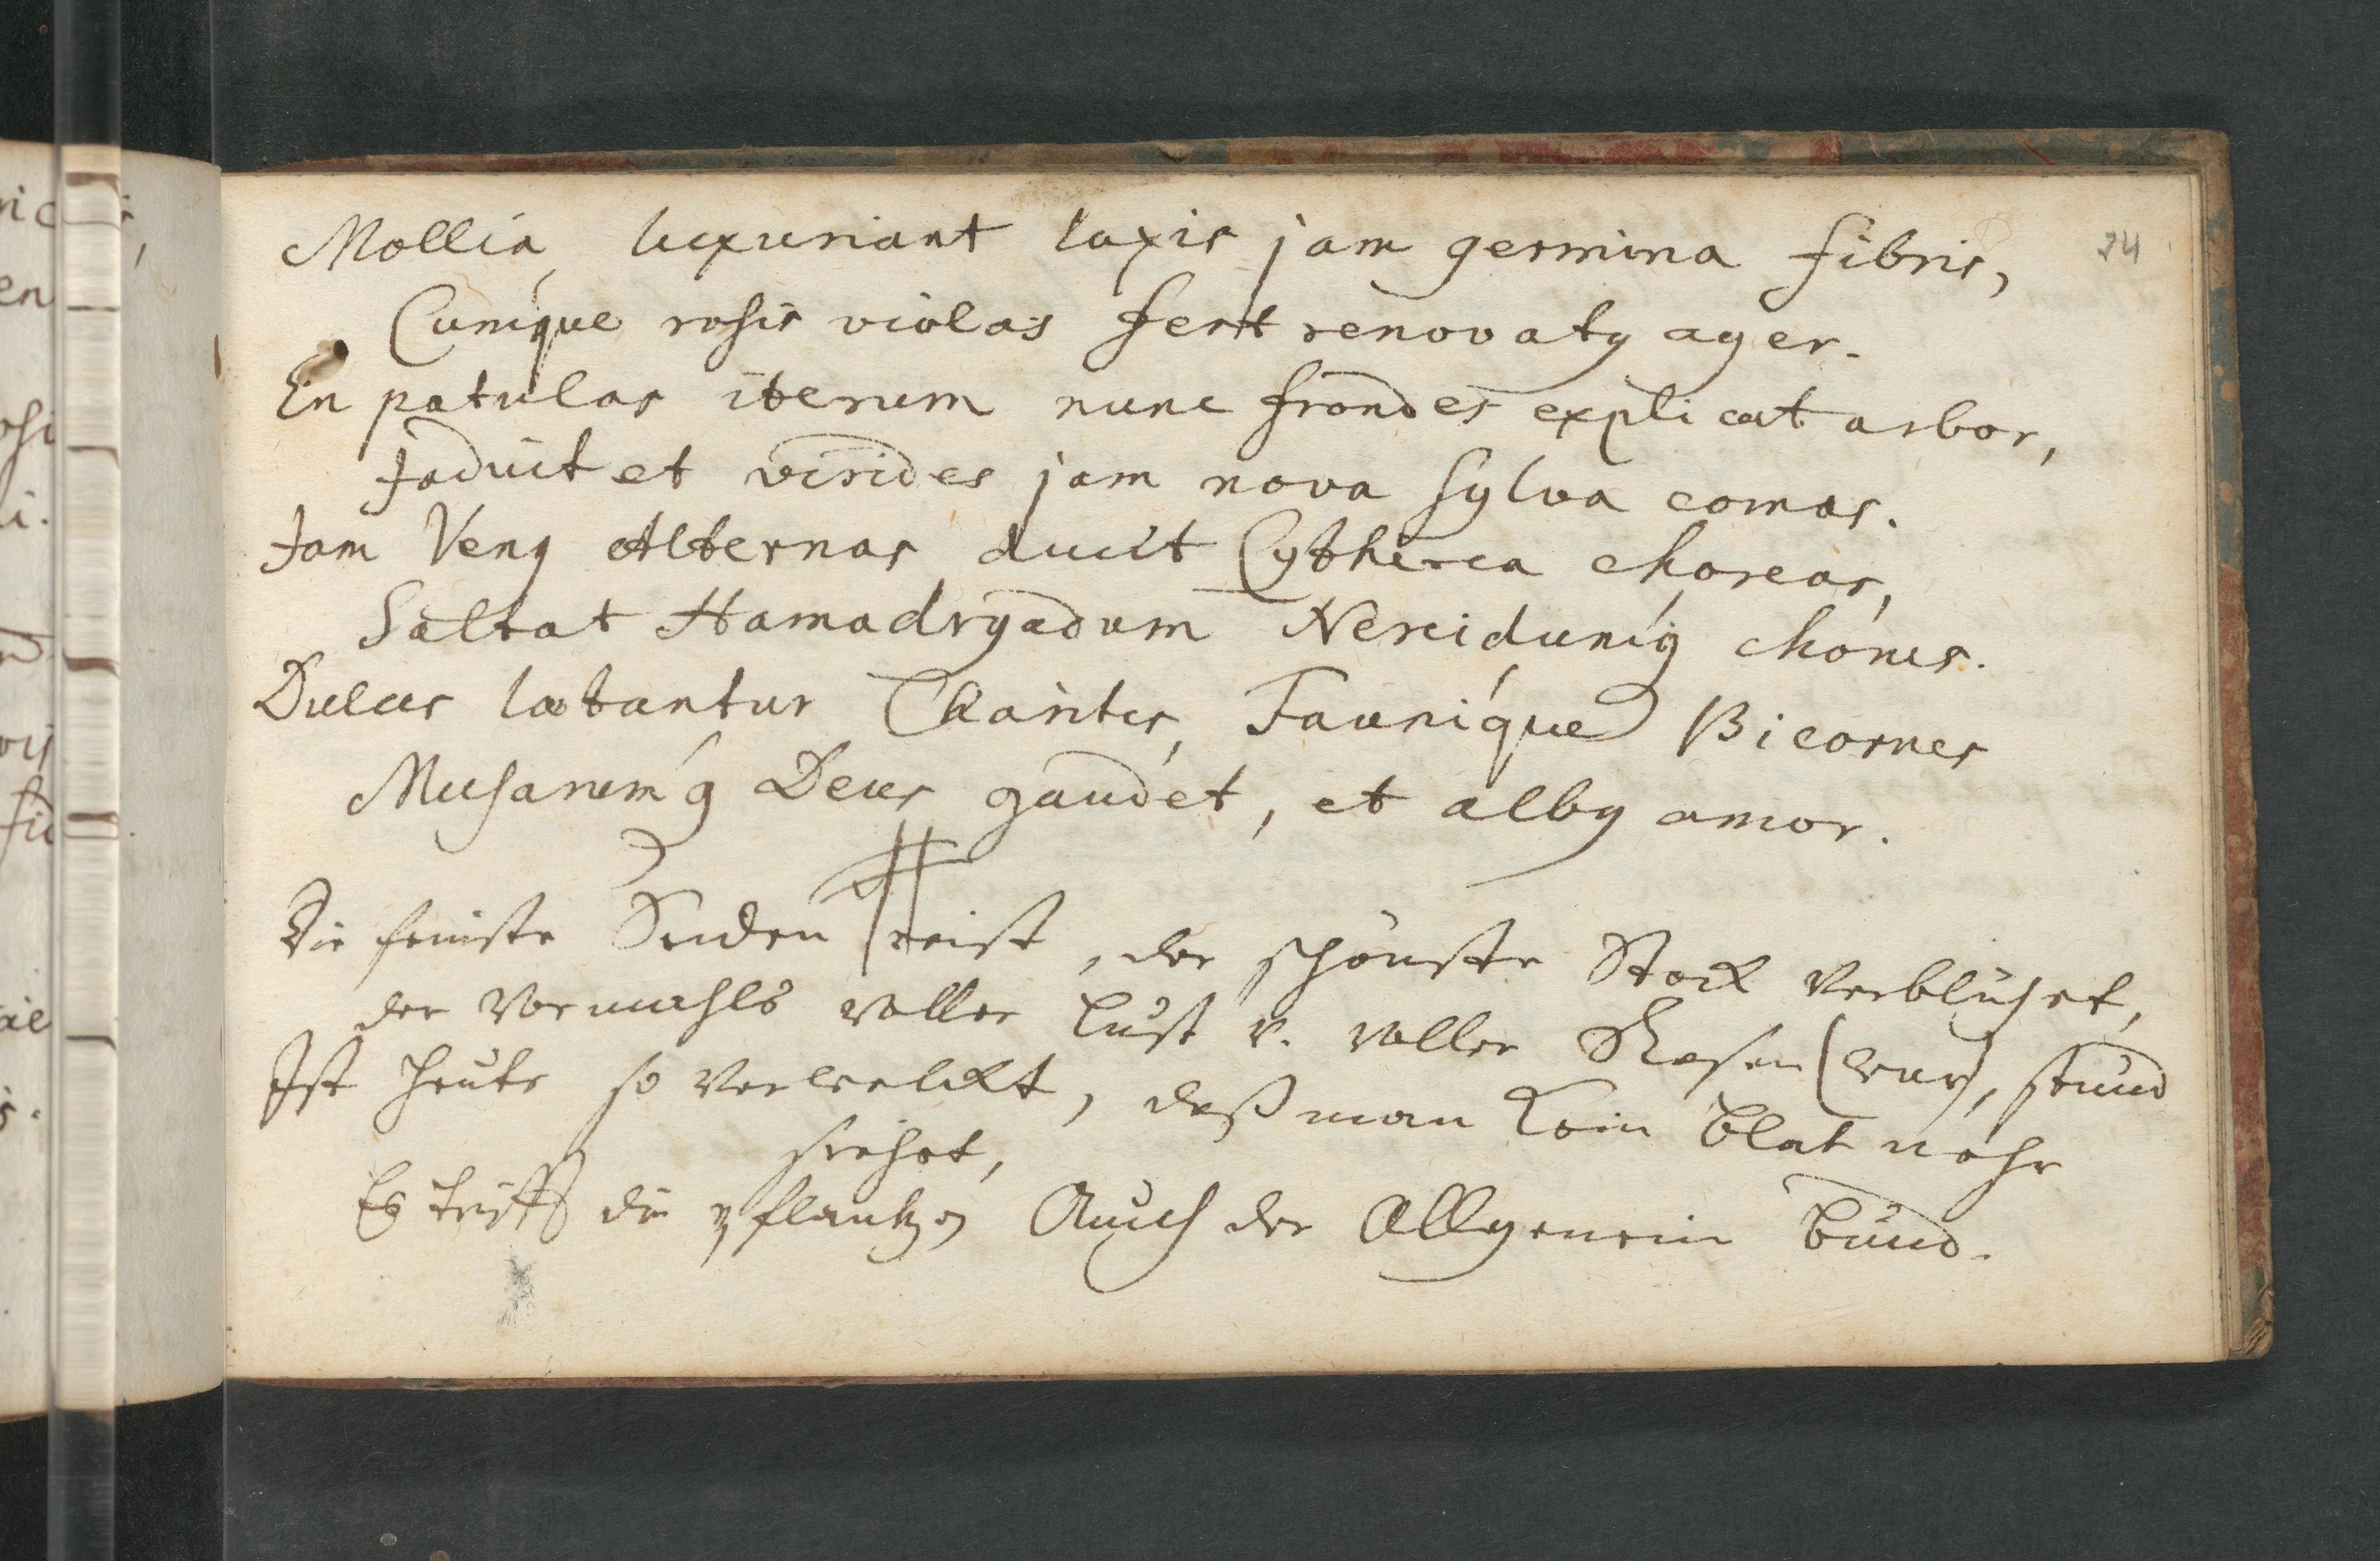 24
Mollia luxuriant laxis jam germina fibris,
Cumque rosis violas fert renovatꝰ ager.
En patulas iterum nunc frondes explicat arbor,
Jaduit et virides jam nova sylva comas.
Jam Venꝰ Alternas ducit Cytherea choreas,
Saltat Hamadryadum Nereidumq́ chorus.
Dulces lætantur Charites, Faunique Bicornes
Musarumq́ Deus gaudet, et albꝰ amor.
Die feinste Seiden reist, der schönste Stock verblühet,
der vormahls voller Lust v. voller Rosen (war), stund
Ist heute so verwelckt, daß man kein blat mehr
siehet,
Es trifft die pflantzen Auch der Allgemein bund.